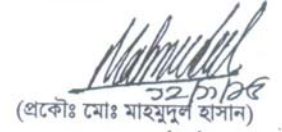 Mahmudul
১২/১/১৫
(প্রকৌঃ মোঃ মাহমুদুল হাসান)